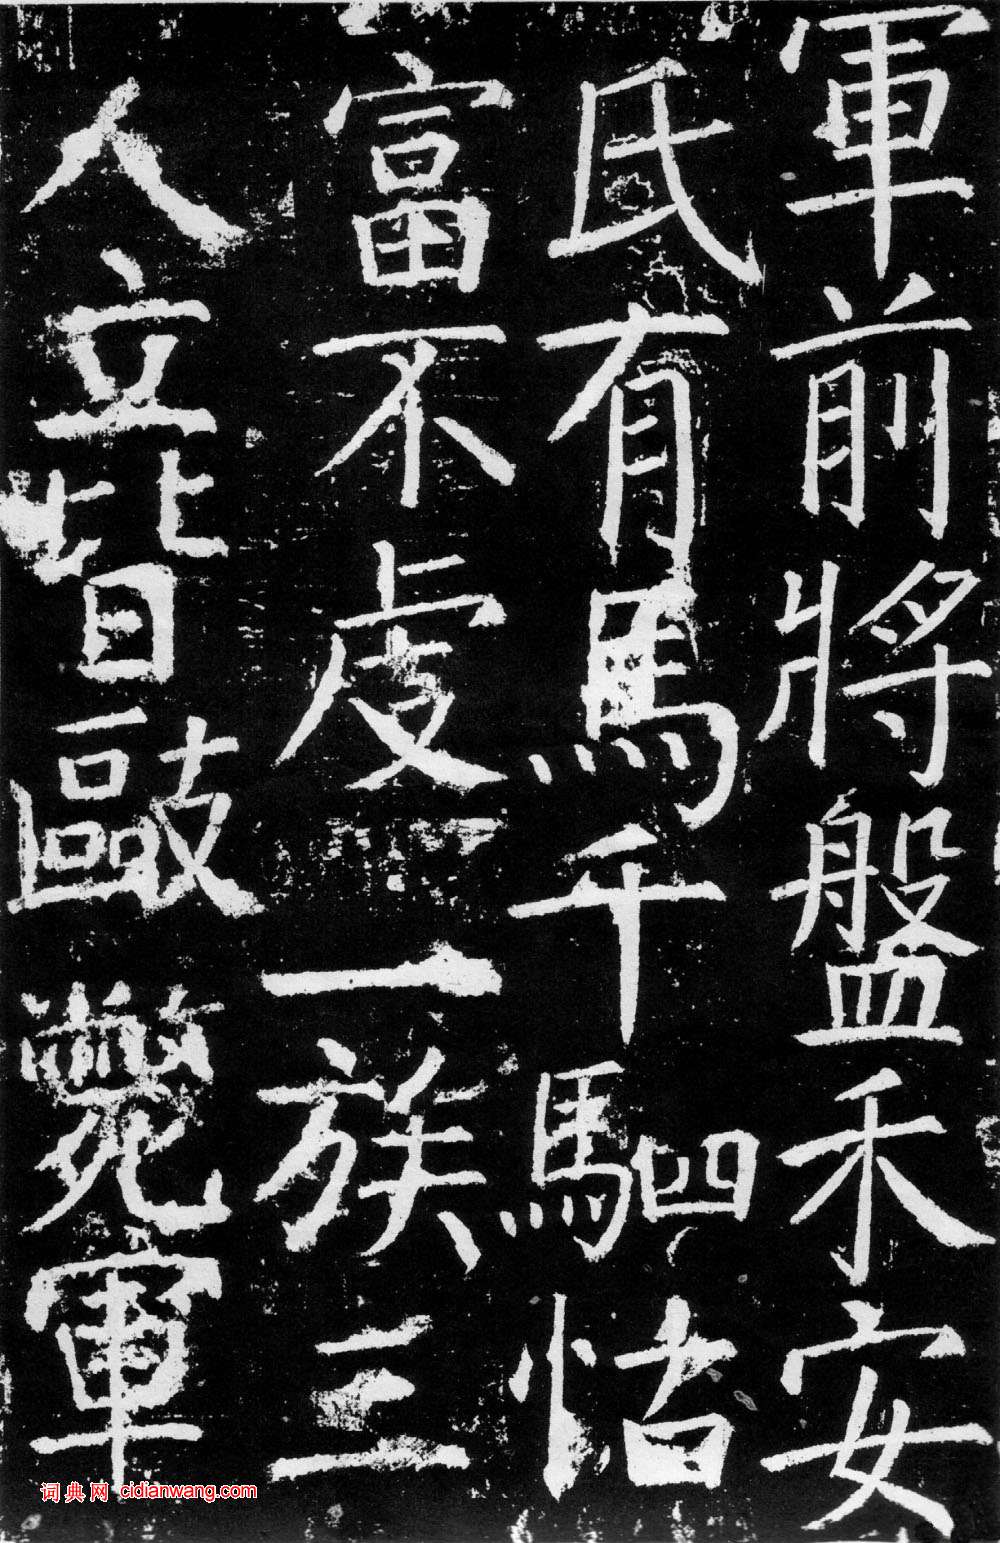 軍前將盤禾安
氏有馬千駟怙
富不虔一族三
人立皆毆斃軍
词典网 cidianwang.com